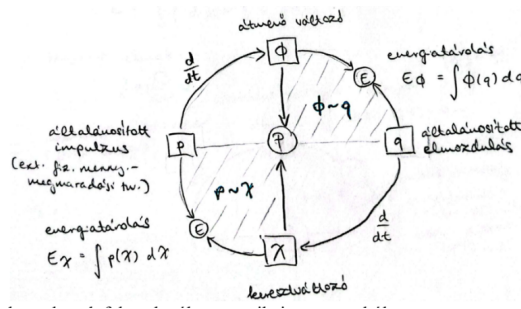 átmenő változó
ϕ
d/dt
energiatárolás
Eϕ = ∫ϕ(q) dq
E
ϕ~q
általánosított
impulzus
(ext. fiz. menny.-
megmaradási tv.)
p
P
q
általánosított
elmozdulás
p~χ
energiatárolás
Eχ = ∫p(χ) dχ
E
χ
d/dt
keresztváltozó